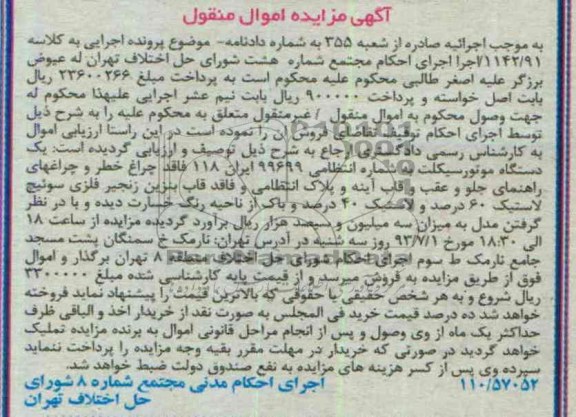 آگهی مزایده اموال منقول
به موجب اجرائیه صادره از شعبه ۳۵۵ به شماره دادنامه- موضوع پرونده اجرایی به کلاسه
۱۱۴۲/۹۱/اجرا اجرای احکام مجتمع شماره هشت شورای حل اختلاف تهران له عیوض
برزگر علیه اصغر طالبی محکوم علیه محکوم است به پرداخت مبلغ ۲۳۶۰۰۲۶۶ ریال
بابت اصل خواسته و پرداخت ۹۰۰۰۰۰ ریال بابت نیم عشر اجرایی علیهذا محکوم له
جهت وصول محکوم به اموال منقول / غیرمنقول متعلق به محکوم علیه را به شرح ذیل
توسط اجرای احکام توقیف تقاضای فروش آن را نموده است در این راستا ارزیابی اموال
به کارشناس رسمی دادگستری ارجاع به شرح ذیل توصیف و ارزیابی گردیده است: یک
دستگاه موتورسیکلت به شماره انتظامی ۹۹۶۹۹ ایران ۱۱۸ فاقد چراغ خطر و چراغهای
راهنمای جلو و عقب و قاب آینه و پلاک انتظامی و فاقد قاب بنزین زنجیر فلزی سوئیچ
لاستیک ۶۰ درصد و لاستیک ۴۰ درصد و باک از ناحیه رنگ خسارت دیده و با در نظر
گرفتن مدل به میزان سه میلیون و سیصد هزار ریال برآورد گردیده مزایده از ساعت ۱۸
الی ۱۸:۳۰ مورخ ۹۳/۷/۱ روز سه شنبه در آدرس تهران: نارمک خ سمنگان پشت مسجد
جامع نارمک ط سوم اجرای احکام شورای حل اختلاف منطقه ۸ تهران برگذار و اموال
فوق از طریق مزایده به فروش میرسد و از قیمت پایه کارشناسی شده مبلغ ۳۳۰۰۰۰۰
ریال شروع و به هر شخص حقیقی یا حقوقی که بالاترین قیمت را پیشنهاد نماید فروخته
خواهد شد ده درصد قیمت خرید فی المجلس به صورت نقد از خریدار اخذ و الباقی ظرف
حداکثر یک ماه از وی وصول و پس از انجام مراحل قانونی اموال به برنده مزایده تملیک
خواهد گردید در صورتی که خریدار در مهلت مقرر بقیه وجه مزایده را پرداخت ننماید
سپرده وی پس از کسر هزینه های مزایده به نفع صندوق دولت ضبط خواهد شد.
۱۱۰/۵۷۰۵۲ اجرای احکام مدنی مجتمع شماره ۸ شورای
حل اختلاف تهران